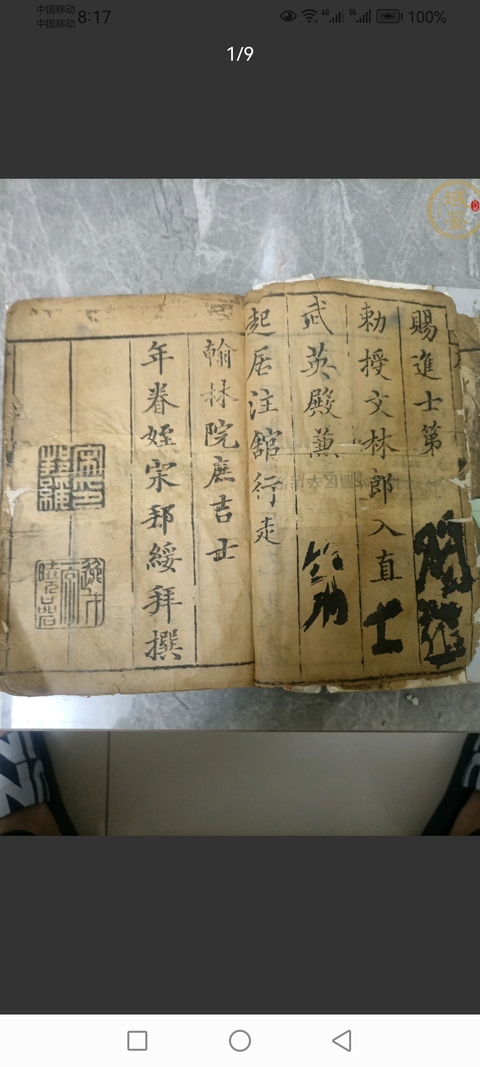 中国移动
中国移动
8:17
4G
5G
100%
1/9
賜進士第
勅授文林郎入直
士
武英殿兼
起居注館行走
翰林院庶吉士
年眷姪宋邦綏拜撰